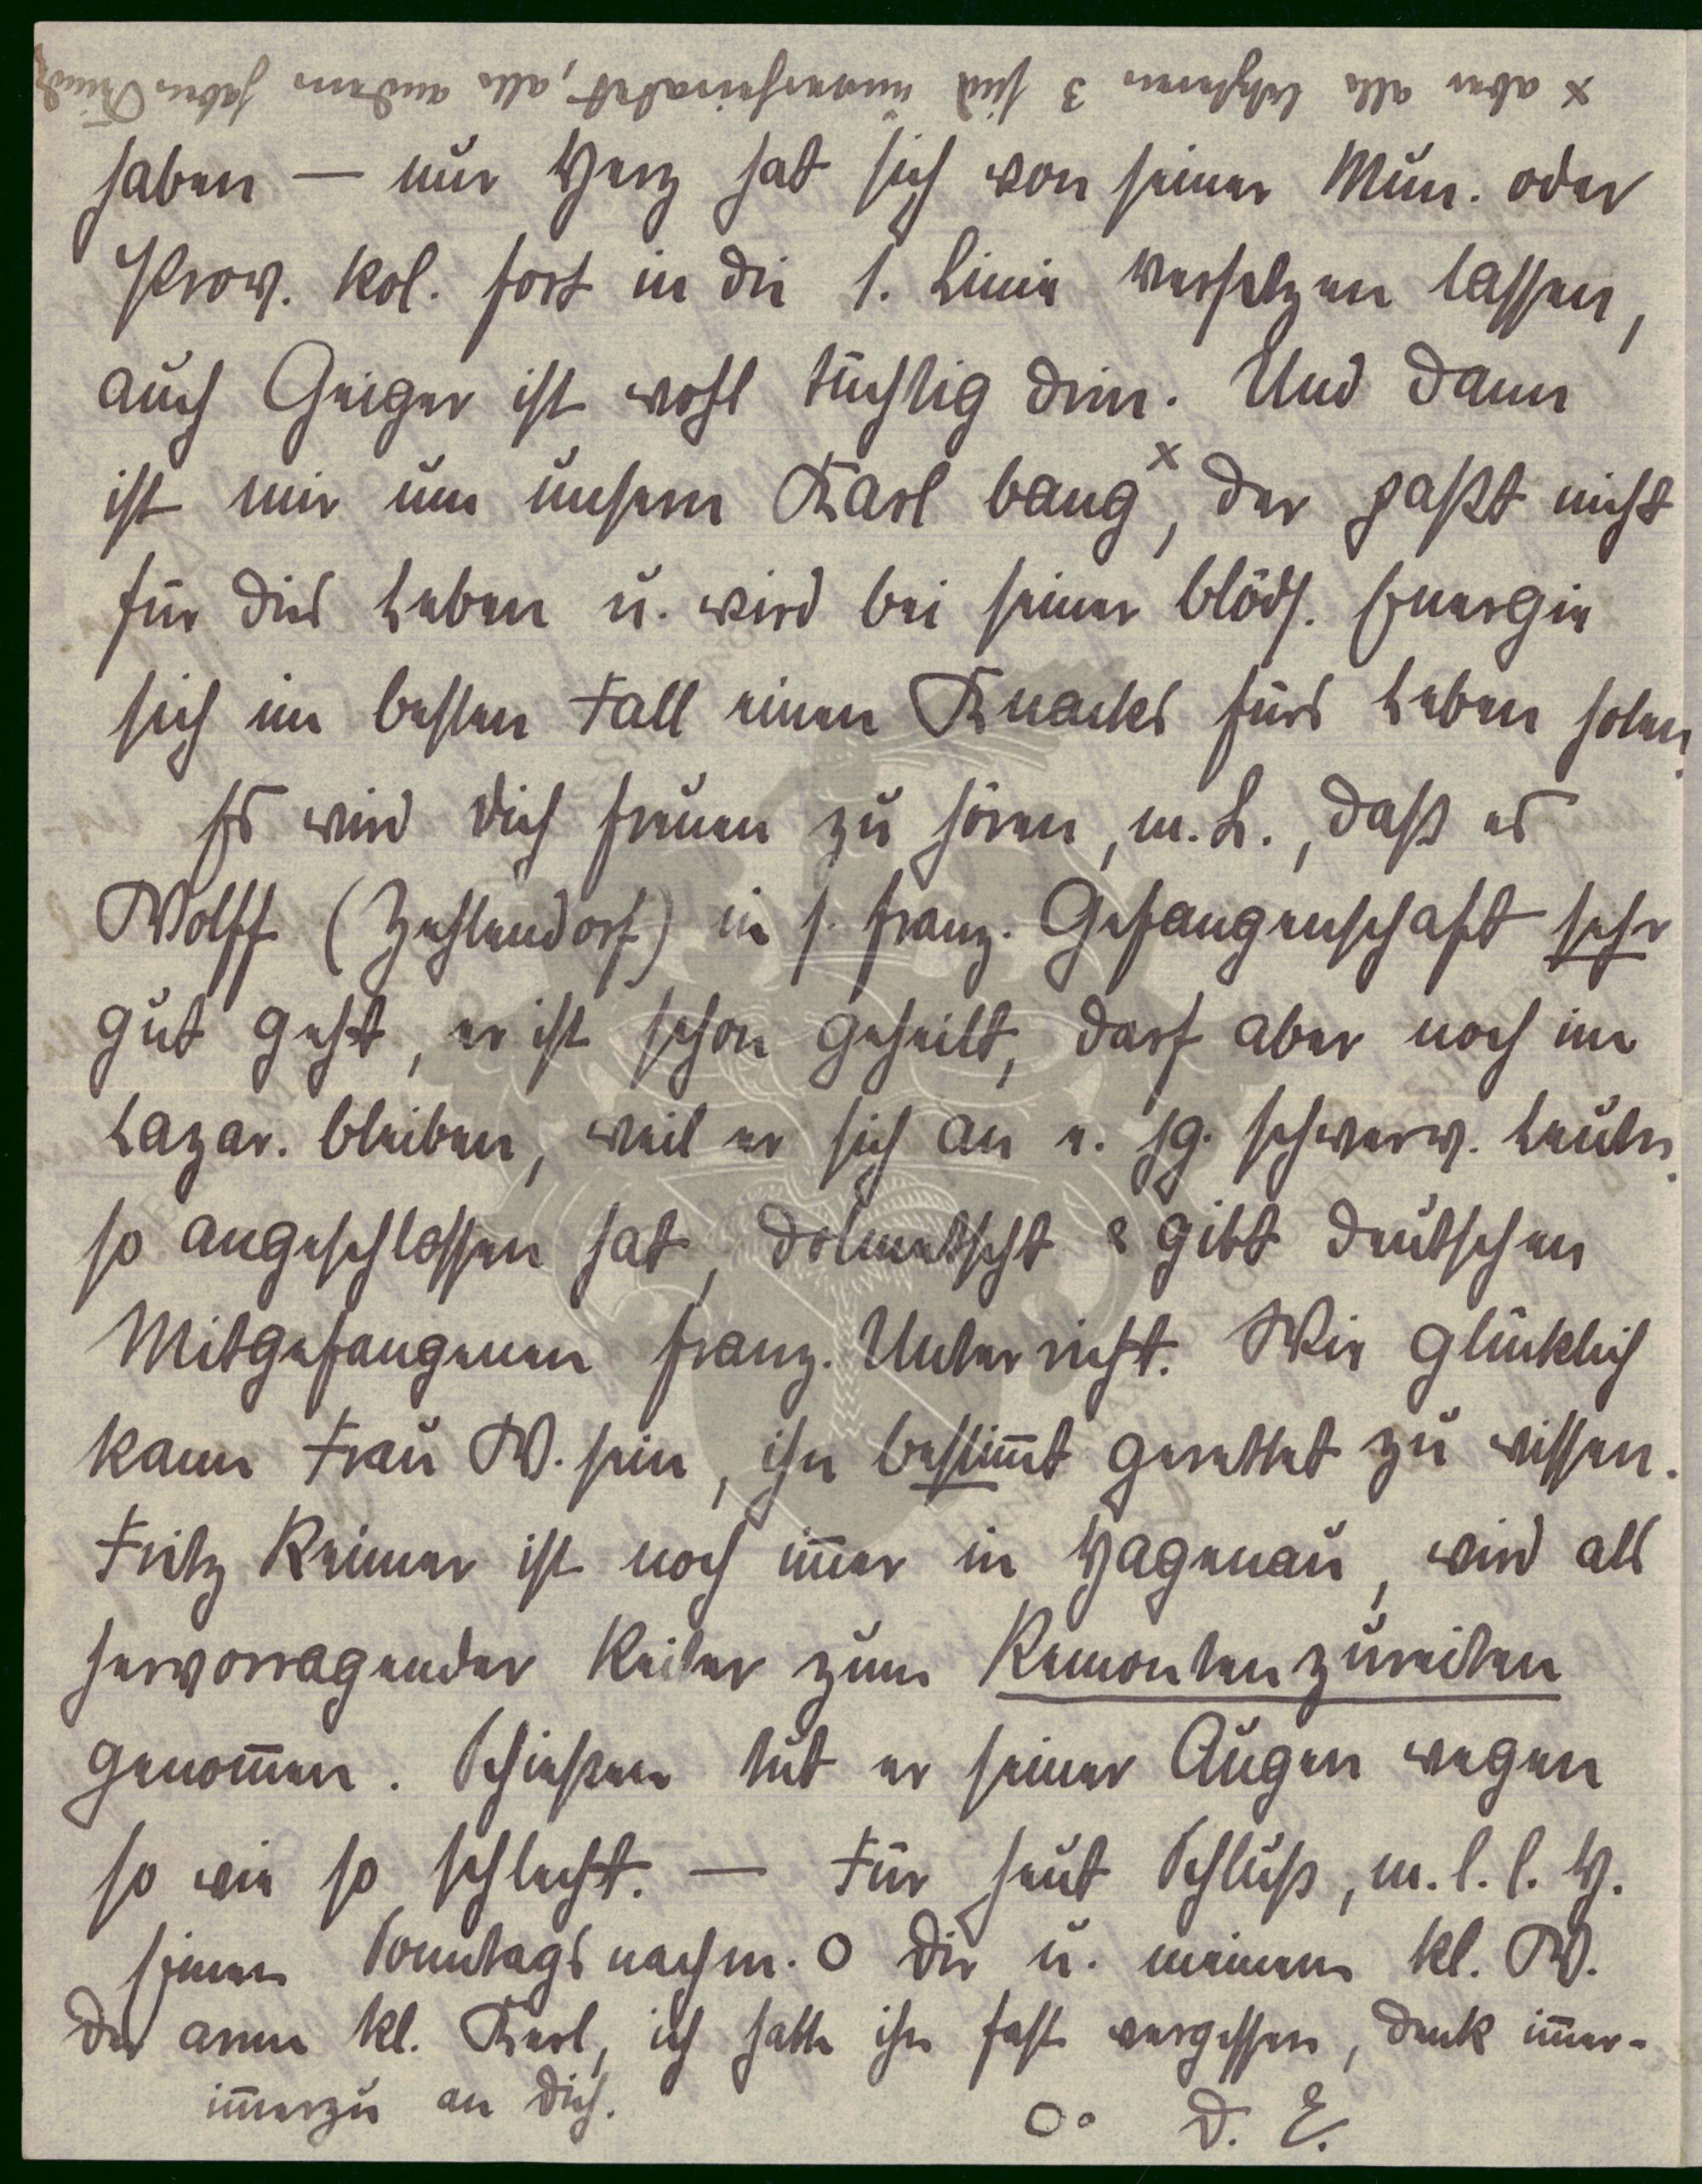 x aber alle letzteren 3 sind unverheiratet, alle andern haben Kind
haben — nur Herz hat sich von seiner Mun. oder
Prov. Kol. fort in die 1. Linie versetzen lassen,
auch Geiger ist wohl tüchtig drin. Und dann
ist mir um unsern Karl bang x, der paßt nicht
für dies Leben u. wird bei seiner blöds. Energie
sich im besten Fall einen Knacks fürs Leben holen.
Es wird Dich freuen zu hören, m. L., daß es
Wolff (Zehlendorf) in s. franz. Gefangenschaft sehr
gut geht, er ist schon geheilt, darf aber noch im
Lazar. bleiben, weil er sich an e. jg. schwerv. Leutn.
so angeschlossen hat, dolmetscht & gibt deutschen
Mitgefangenen franz. Unterricht. Wie glücklich
kann Frau W. sein, ihn bestim̅t gerettet zu wissen.
Fritz Reimer ist noch im̅er in Hagenau, wird als
hervorragender Reiter zum Remontenzureiten
genom̅en. Schießen tut er seiner Augen wegen
so wie so schlecht. — Für heut Schluß, m. l. l. H.
Einen Sonntagsnachm. O Dir u. meinem kl. W.
Der arme kl. Kerl, ich hatte ihn fast vergessen, denk im̅er-
im̅erzu an Dich.
Oo D. E.